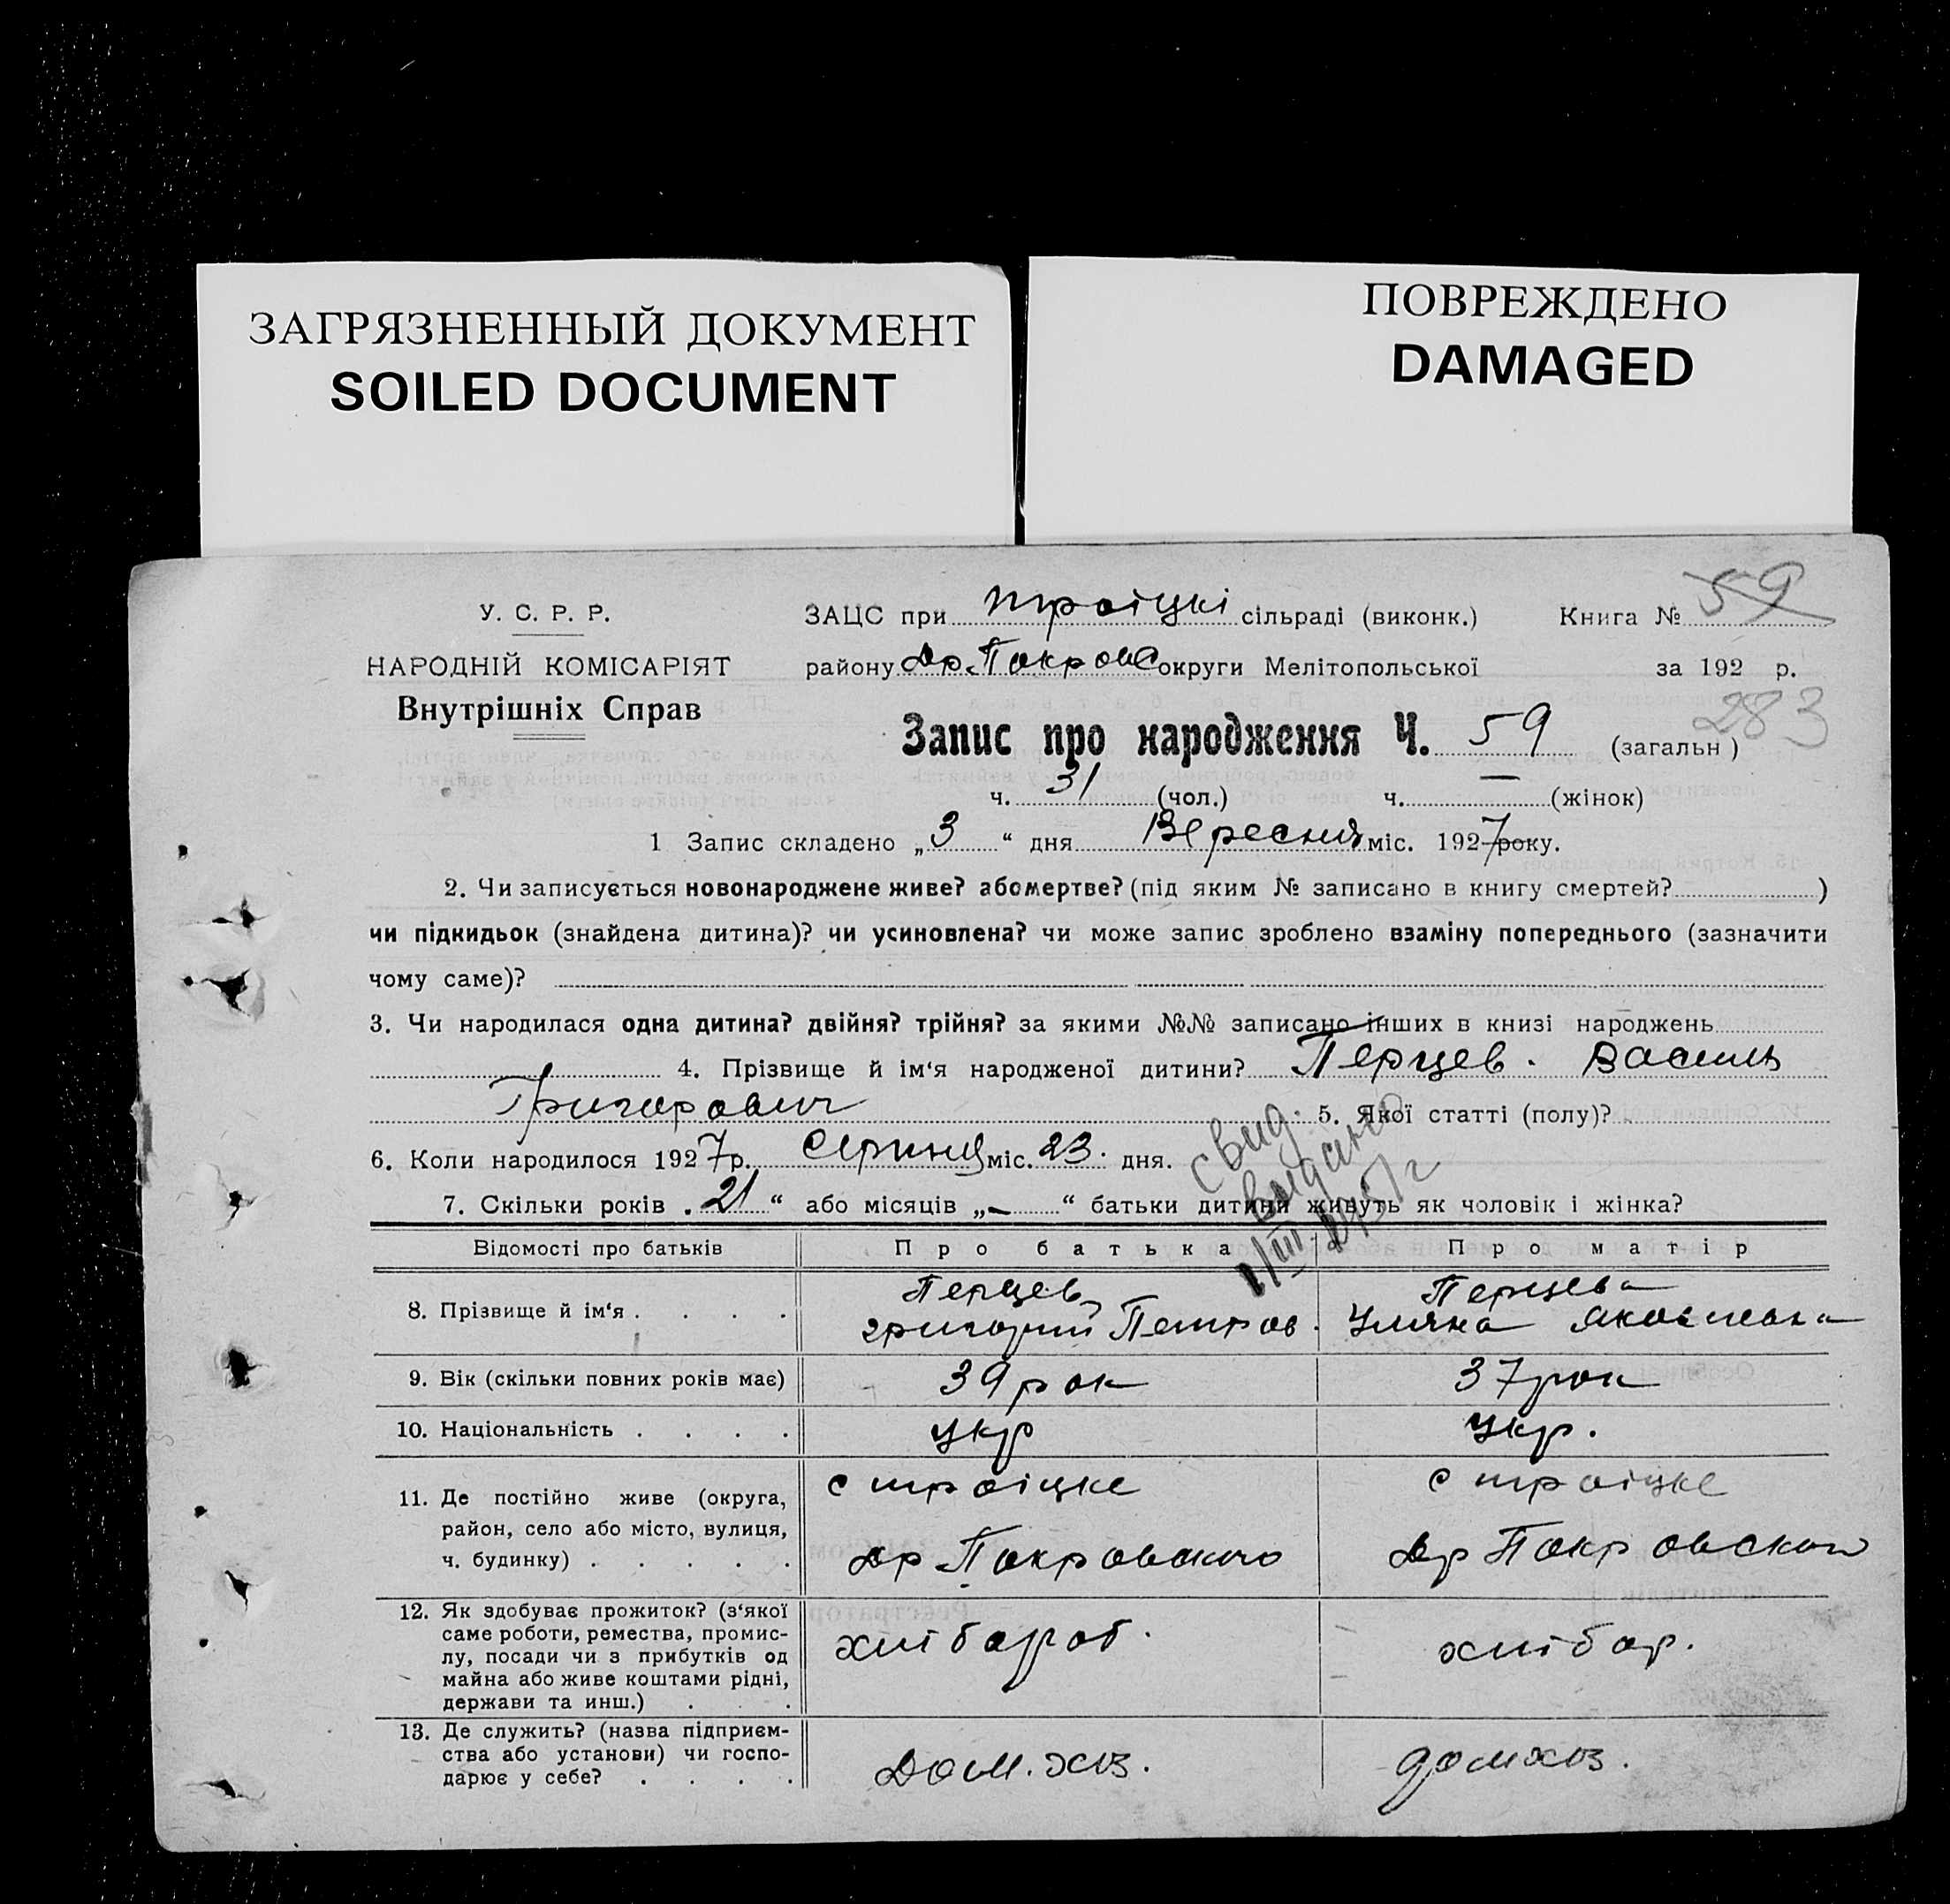 ЗАГРЯЗНЕННЫЙ ДОКУМЕНТ
SOILED DOCUMENT
ПОВРЕЖДЕНО
DAMAGED
У. С. Р. Р.
НАРОДНІЙ КОМІСАРІЯТ
Внутрішніх Справ
ЗАЦС при троіцкі сільраді (виконк.) Книга № 59
району Др. Покровс округи Мелітопольської за 192 р.
283
Запис про народження Ч. 59 (загальн)
ч. 31 (чол.) ч. — (жінок)
1 Запис складено „3“ дня Вересня міс. 1927 року.
2. Чи записується новонароджене живе? або мертве? (під яким № записано в книгу смертей? )
чи підкидьок (знайдена дитина)? чи усиновлена? чи може запис зроблено взаміну попереднього (зазначити
чому саме)?
3. Чи народилася одна дитина? двійня? трійня? за якими №№ записано інших в книзі народжень
4. Прізвище й ім'я народженої дитини? Перцев. Василь
Григорович 5. Якої статті (полу)?
6. Коли народилося 1927 р. Серпня міс. 23. дня.
7. Скільки років „21“ або місяців „—“ батьки дитини живуть як чоловік і жінка?
свид.
выдано
1/III-1951 г
Відомості про батьків Про батька Про матір
8. Прізвище й ім'я . . . . Перцев Григорий Петров. Перцева Уляна Яковлевна
9. Вік (скільки повних років має) 39 рок 37 рок
10. Національність . . . . укр укр.
11. Де постійно живе (округа, с троіцке с троіцке
район, село або місто, вулиця,
ч. будинку) . . . . . Др Покровского Др Покровского
12. Як здобуває прожиток? (з'якої
саме роботи, ремества, промис-
лу, посади чи з прибутків од хлібороб. хлібор.
майна або живе коштами рідні,
держави та инш.) . . .
13. Де служить? (назва підприєм-
ства або установи) чи госпо- Дом. хоз. домхоз.
дарює у себе? . . . .